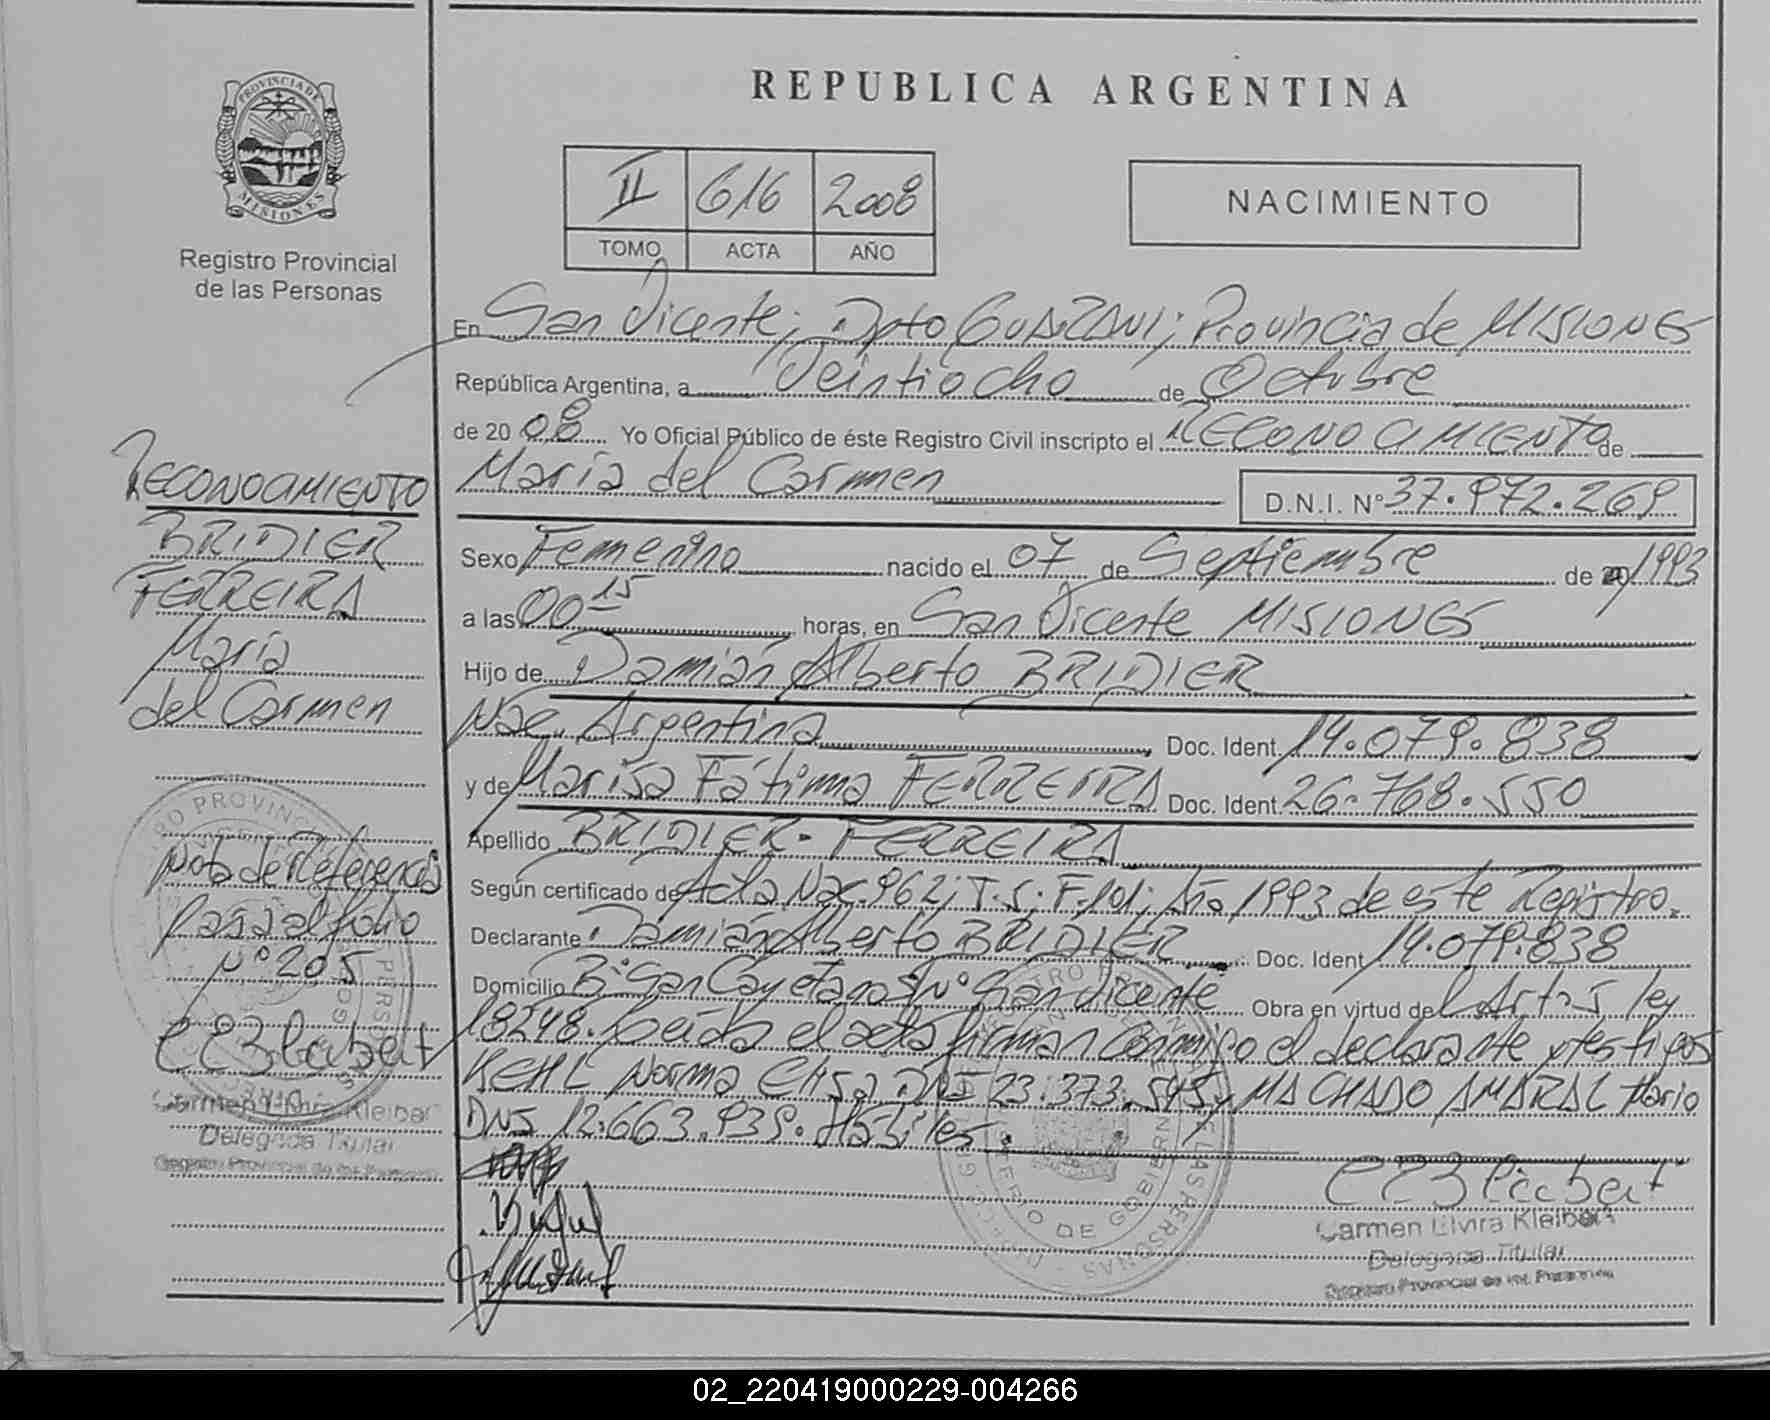 REPUBLICA ARGENTINA
PROVINCIA DE MISIONES
Registro Provincial
de las Personas
II 616 2008
TOMO ACTA AÑO
NACIMIENTO
En San Vicente; Dpto GUARANI; Provincia de MISIONES
República Argentina, a Veintiocho de Octubre
de 2008 Yo Oficial Público de éste Registro Civil inscripto el RECONOCIMIENTO de
María del Carmen D.N.I. Nº 37.972.269
Sexo Femenino nacido el 07 de Septiembre de 20 1993
a las 00 15 horas, en San Vicente MISIONES
Hijo de Damián Alberto BRIDIER
Nac. Argentina Doc. Ident. 14.079.838
y de Marisa Fátima FERREIRA Doc. Ident. 26.768.550
Apellido BRIDIER - FERREIRA
Según certificado de Acta Nac. 962; T.5; F.101; Año 1993 de este Registro.
Declarante Damián Alberto BRIDIER Doc. Ident 14.079.838
Domicilio Bº San Cayetano S/Nº San Vicente Obra en virtud del Art. 5 ley
18248. Leída el acta firman conmigo el declarante y testigos
KEHL Norma Elisa DNI 23.373.545 y MACHADO AMARAL Mario
DNI 12.663.939. Hábiles.
Carmen Elvira Kleibert
Delegada Titular
Registro Provincial de las Personas
RECONOCIMIENTO
BRIDIER
FERREIRA
María
del Carmen
Nota de Referencia
Pasa al folio
Nº 205
Carmen Elvira Kleibert
Delegada Titular
Registro Provincial de las Personas
02_220419000229-004266